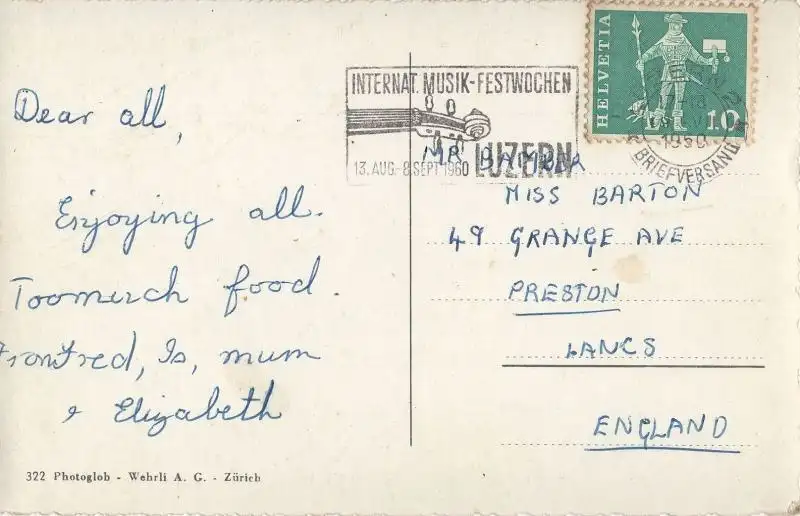 Dear all,
Enjoying all.
Toomuch food.
Fred, Is, mum
& Elizabeth
322 Photoglob - Wehrli A. G. - Zürich
INTERNAT. MUSIK-FESTWOCHEN
LUZERN
13. AUG.-8. SEPT 1960
HELVETIA
10
1960
BRIEFVERSAND
MR
MISS BARTON
49 GRANGE AVE
PRESTON
LANCS
ENGLAND